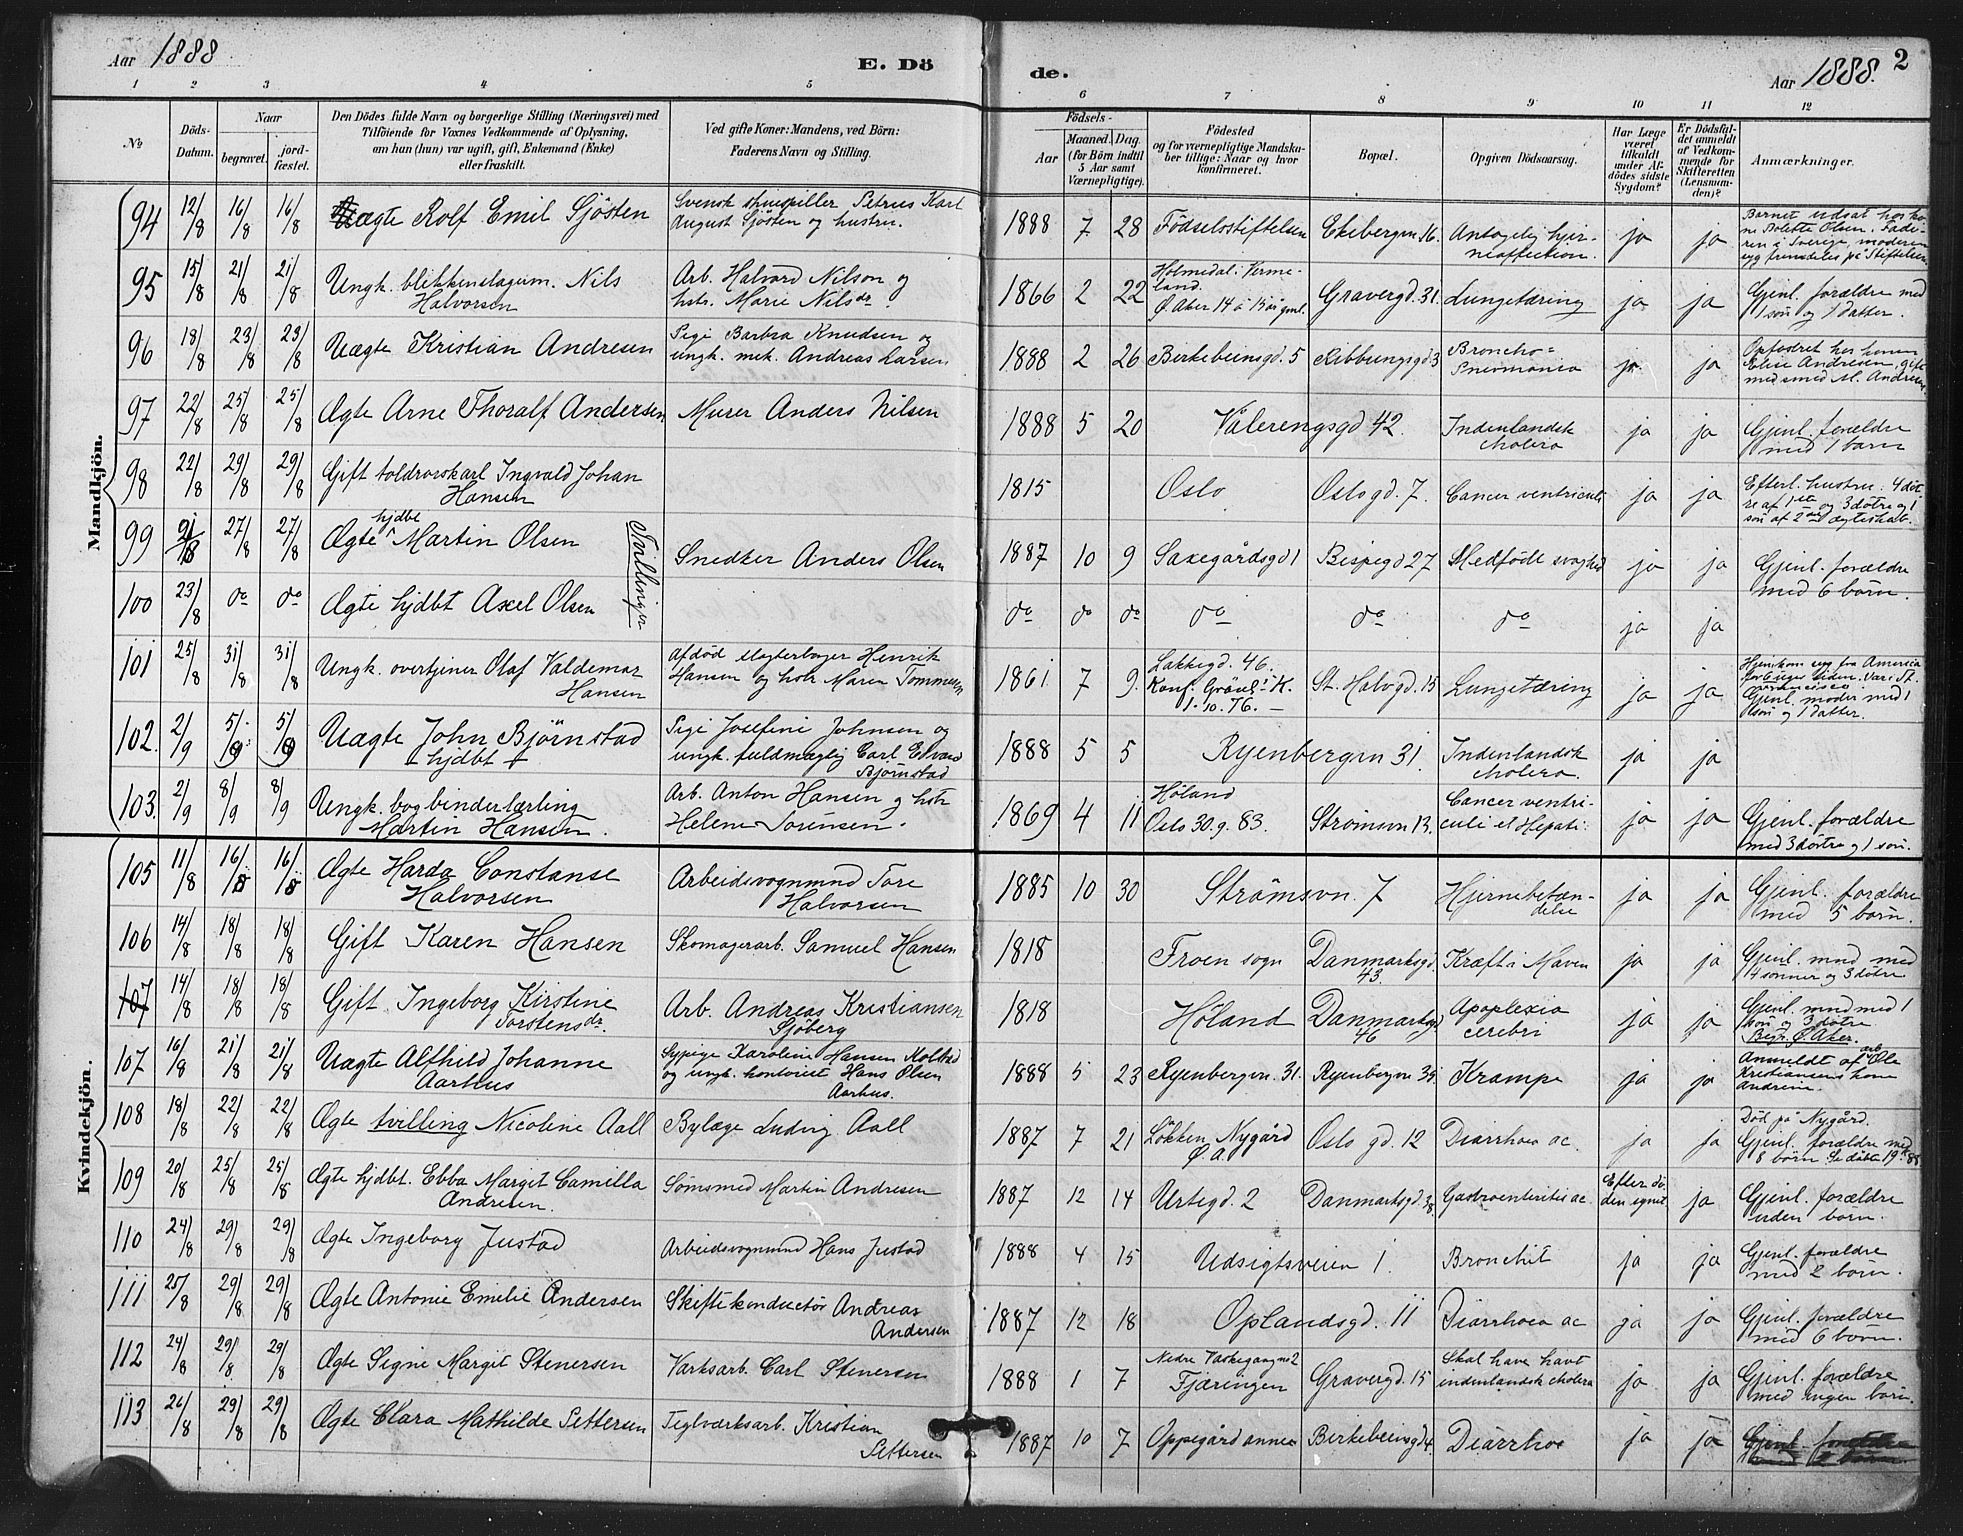 Aar 1888
E. Dö
de.
Aar 1888.
2
1 2 3 4 5 6 7 8 9 10 11 12
No
Döds-
Datum.
Naar
begravet.
jord-
fæstet.
Den Dödes fulde Navn og borgerlige Stilling (Næringsvei) med
Tilföiende for Voxnes Vedkommende af Oplysning,
om han (hun) var ugift, gift, Enkemand (Enke)
eller fraskilt.
Ved gifte Koner: Mandens, ved Börn:
Faderens Navn og Stilling.
Födsels-
Aar
Maaned. Dag.
(for Börn indtil
5 Aar samt
Værnepligtige).
Födested
og for værnepligtige Mandska-
ber tillige: Naar og hvor
konfirmeret.
Bopæl.
Opgiven Dödsaarsag.
Har Læge
været
tilkaldt
under Af-
dödes sidste
Sygdom?
Er Dödsfal-
det anmeldt
af Vedkom-
mende for
Skifteretten
(Lensman-
den)?
Anmærkninger.
Mandkjön.
94 12/8 16/8 16/8 Uægte Rolf Emil Sjösten
Svensk skuespiller Petrus Karl
August Sjösten og hustru.
1888 7 28 Födselsstiftelsen Ekebergvn 16. Antagelig hjer-
neaffection. ja ja
Barnet udsat hos ko-
ne Bolette Olsen. Fade-
ren i Sverige, moderen
syg fremdeles på Stiftelsen
95 15/8 21/8 21/8 Ungk. blikkenslagersv. Nils
Halvorsen
Arb. Halvord Nilson og
hstr. Marie Nilsdr
1866 2 22 Holmedal i Verme-
land.
Ø. Aker 14 à 15 år gml. Gravergd. 31. Lungetæring ja ja
Gjenl. forældre med
1 sön og 1 datter.
96 18/8 23/8 23/8 Uægte Kristian Andresen
Pige Barbra Knudsen og
ungk. mek. Andreas Larsen
1888 2 26 Birkebeinsgd. 5 Ribbungsgd. 3 Broncho=
Pneumonia ja ja
Opfostret hos konen
Elise Andresen, gift
med smed M. Andresen
97 22/8 25/8 25/8 Ægte Arne Thoralf Andersen Murer Anders Nilsen
1888 5 20 Vålerengsgd 42. Indenlandsk
cholera ja ja
Gjenl. forældre
med 1 barn
98 22/8 29/8 29/8 Gift toldrorskarl Ingvald Johan
Hansen
1815 Oslo Oslogd. 7. Cancer ventriculi ja ja
Efterl. hustru. 4 döt-
re af 1ste og 3 dötre og 1
sön af 2det ægteskab.
99 21/8 27/8 27/8 Ægte hjdbt Martin Olsen
Tvillinger
Snedker Anders Olsen
1887 10 9 Saxegårdsgd 1 Bispegd 27 Medfödt svaghed ja ja
Gjenl. forældre
med 6 börn.
100 23/8 do do Ægte hjdbt Axel Olsen
do do do do do do ja ja
101 25/8 31/8 31/8 Ungk. overtjener Olaf Valdemar
Hansen
Afdöd slagterborger Henrik
Hansen og hstr Maren Tommesen
1861 7 9. Lakkegd. 46.
Konf. Grönl. K.
1.10.76. St. Halvgd. 15 Lungetæring ja ja
Hjemkom syg fra America
for 6 uger siden. Var i St.
Francisco
Gjenl. moder med 1
sön og 1 datter.
102. 2/9 5/9 5/9 Uægte John Bjørnstad
hjdbt
Pige Josefine Johnsen og
ungk. fuldmægtig Carl Edvard
Bjørnstad
1888 5 5 Ryenbergvn 31. Indenlandsk
cholera. ja ja
103. 2/9 8/9 8/9 Ungk. bogbinderlærling
Martin Hansen.
Arb. Anton Hansen og hstr
Helene Sørensen.
1869 4 11 Höland
Oslo 30.9.83. Strömsvn 13. Cancer ventri-
culi et Hepati. ja ja
Gjenl. forældre
med 3 döttre og 1 sön.
Kvindekjön.
105 11/8 16/8 16/8 Ægte Harda Constanse
Halvorsen
Arbeidsvognmnd Tore
Halvorsen
1885 10 30 Strömsvn. 7 Hjernebetæn-
delse ja ja
Gjenl. forældre
med 5 börn.
106 14/8 18/8 18/8 Gift Karen Hansen Skomagerarb. Samuel Hansen
1818 Froen sogn Danmarksgd.
43. Kræft i Maven ja ja
Gjenl. mnd med
4 sönner og 3 dötre
107 14/8 18/8 18/8 Gift Ingeborg Kirstine
Torstensdr.
Arb. Andreas Kristiansen
Sjöberg
1818 Höland Danmarksgd
46 Apoplexia
cerebri ja ja
Gjenl. mnd med 1
sön og 3 dötre
Begr. Ø. Aker.
107 16/8 21/8 21/8 Uægte Alfhild Johanne
Aarhus
Sypige Karoline Hansen Kolstad
og ungk. kontorist Hans Olsen
Aarhus.
1888 5 23 Ryenbergvn. 31. Ryenbergvn 35. Krampe ja ja
Anmeldt af arb Ole
Kristiansens kone
Andrine.
108 18/8 22/8 22/8 Ægte tvilling Nicoline Aall Bylæge Ludvig Aall
1887 7 21 Løkken Nygård
Ø. A. Oslo gd. 12 Diarrhoea ac. ja ja
Död på Nygård.
Gjenl. forældre med
8 börn.
109 20/8 25/8 25/8 Ægte hjdbt. Ebba Margit Camilla
Andresen.
Sömsmed Martin Andresen
1887 12 14 Urtegd. 2 Danmarksgd. 38. Gastroenteritis ac. Efter dö-
den synet ja
Gjenl. forældre
uden börn.
110 24/8 29/8 29/8 Ægte Ingeborg Justad Arbeidsvognmnd Hans Justad
1888 4 15 Udsigtsveien 1. Bronchit ja ja
Gjenl. forældre
med 2 börn.
111 25/8 29/8 29/8 Ægte Antonie Emilie Andersen Skiftekonductör Andreas
Andersen
1887 12 18 Oplandsgd. 11 Diarrhoea ac ja ja
Gjenl. forældre
med 6 börn.
112 24/8 29/8 29/8 Ægte Signe Margit Stenersen Værksarb. Carl Stenersen
1888 1 7 Nedre Vaskegang no 2
Fjæringen Gravergd. 15 Skal have havt
indenlandsk cholera ja ja
Gjenl. forældre
med ingen börn.
113 26/8 29/8 29/8 Ægte Clara Mathilde Pettersen Teglværksarb. Kristian
Pettersen
1887 10 7 Oppegård annex Birkebeinsgd 4. Diarrhoe ja ja
Gjenl. forældre
med 2 börn.